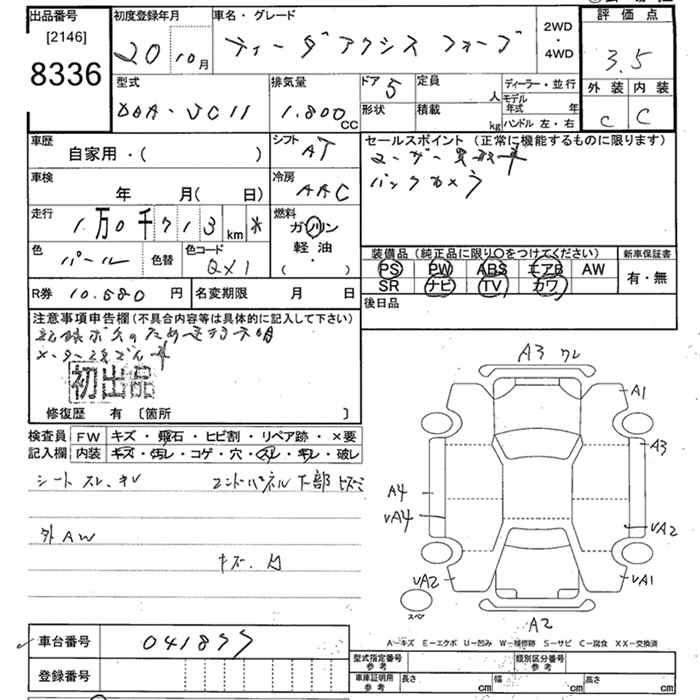 出品番号 初度登録年月 車名・グレード 2WD・4WD 評価点
[2146]
8336
20 10月 ティーダアクシス 3.5
型式 排気量 ドア 5 定員 人 ディーラー・並行 外装 内装
形状 積載 kg モデル年式 年
ハンドル 左・右
DBA-JC11 1.800cc C C
車歴 自家用・( ) シフト AT セールスポイント (正常に機能するものに限ります)
バックカメラ
車検 年 月( 日) 冷房 AAC
走行 1万0千713km* 燃料 ガソリン 軽油 ( ・ )
色 パール 色替 色コード QX1
装備品 (純正品に限り〇をつけてください) 新車保証書
PS PW ABS エアB AW 有・無
SR ナビ TV カワ
R券 10.580円 名変期限 月 日 後日品
注意事項申告欄(不具合内容等は具体的に記入して下さい)
初出品
修復歴 有 〔箇所 〕
検査員 FW キズ・飛石・ヒビ割・リペア跡・×要
記入欄 内装 キズ・汚レ・コゲ・穴・スレ・キレ・破レ
シート スレ、キレ エンドパネル下部
外AW
キズ・凹
A3 ワレ
A1
A3
A4
vA4
vA2
vA2
vA1
スペア
A2
A-キズ E-エクボ U-凹み W-補修跡 S-サビ C-腐食 XX-交換済
車台番号 041877
登録番号
型式指定番号 参考 類別区分番号 参考
車庫証明用 参考 長さ cm 幅 cm 高さ cm